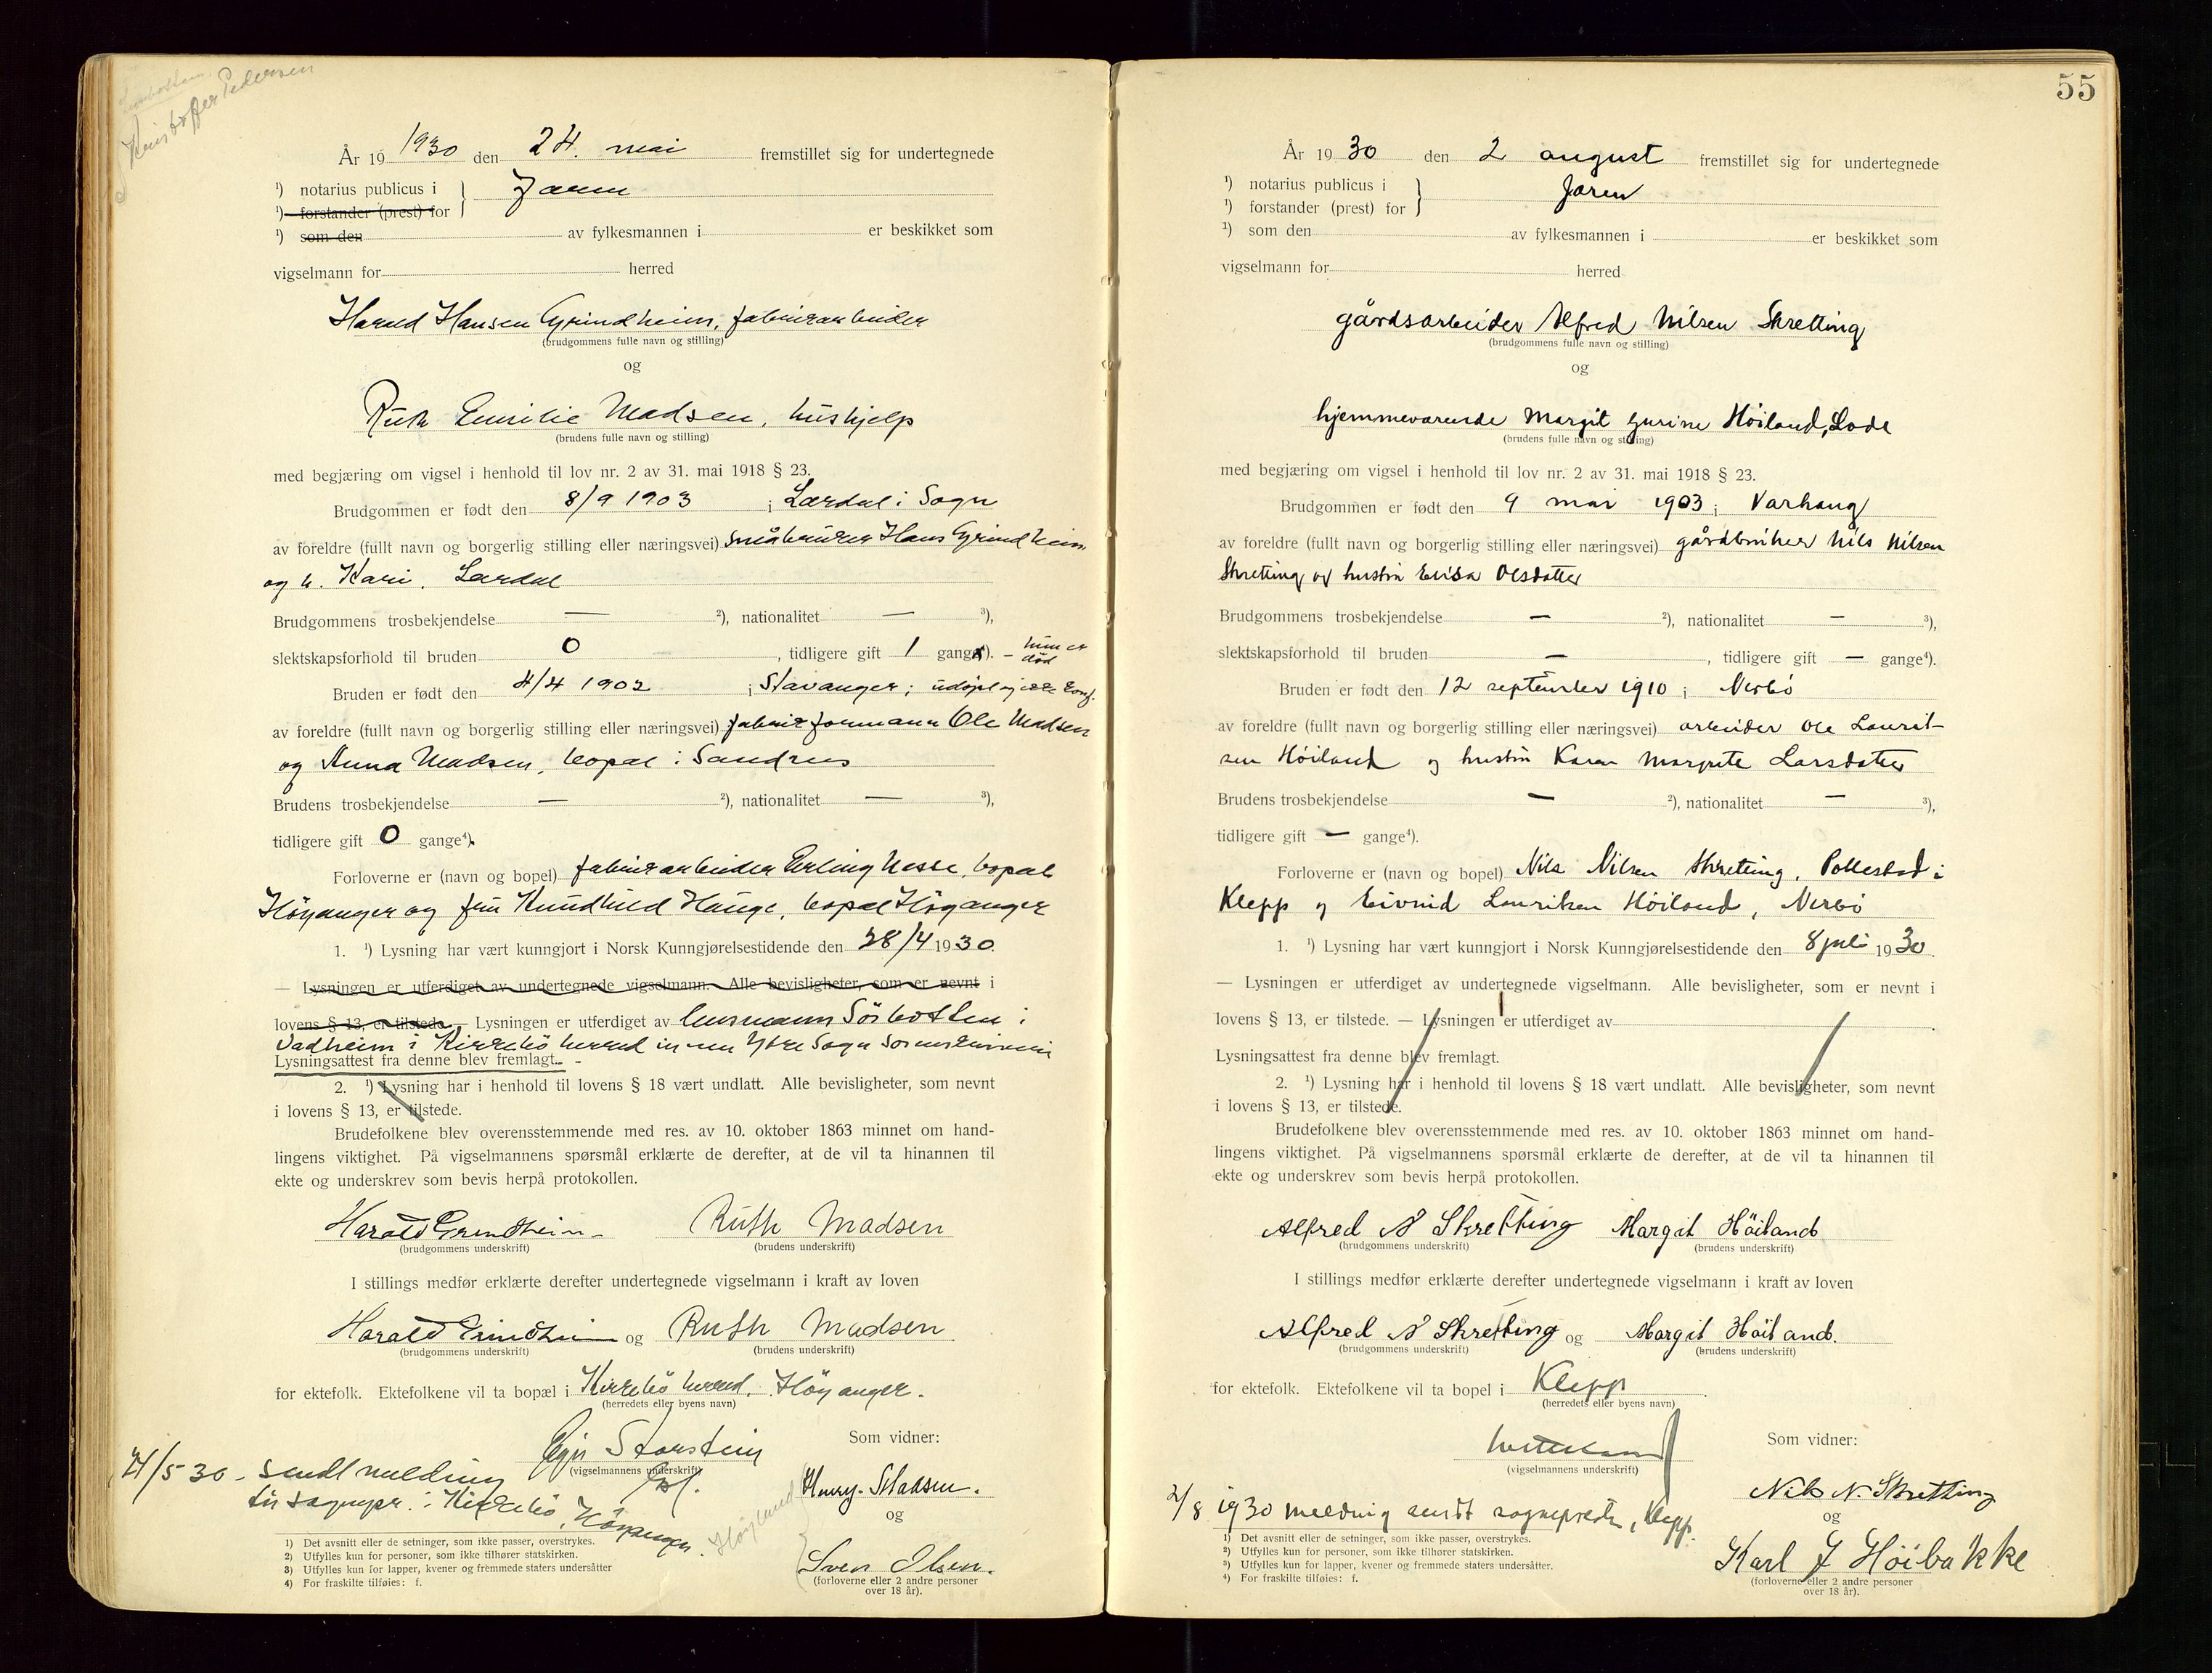 Kristoffer Pedersen
År 19 1930 den 24. mai fremstillet sig for undertegnede
¹) notarius publicus i } Jæren
¹) forstander (prest) for
¹) som den av fylkesmannen i er beskikket som
vigselmann for herred
Harald Hansen Grindheim, fabrikarbeider
(brudgommens fulle navn og stilling)
og
Ruth Emilie Madsen, hushjelp
(brudens fulle navn og stilling)
med begjæring om vigsel i henhold til lov nr. 2 av 31. mai 1918 § 23.
Brudgommen er født den 8/9 1903 i Lærdal i Sogn
av foreldre (fullt navn og borgerlig stilling eller næringsvei) småbruker Hans Grindheim
og h. Kari, Lærdal
Brudgommens trosbekjendelse — ²), nationalitet — ³),
slektskapsforhold til bruden 0, tidligere gift 1 gang⁴). – hun er død
Bruden er født den 4/4 1902 i Stavanger;
av foreldre (fullt navn og borgerlig stilling eller næringsvei) fabrikformann Ole Madsen
og Anna Madsen, bopæl i Sandnes
Brudens trosbekjendelse — ²), nationalitet — ³),
tidligere gift 0 gange⁴).
Forloverne er (navn og bopel) fabrikarbeider Erling Nesse, bopæl
Höyanger og fru Hauge, bopæl Höyanger
1. ¹) Lysning har vært kunngjort i Norsk Kunngjørelsestidende den 28/4 1930.
— Lysningen er utferdiget av undertegnede vigselmann. Alle bevisligheter, som er nevnt i
lovens § 13, er tilstede. — Lysningen er utferdiget av lensmann Sörbotten i
Vadheim i Kirkebö herred Ytre Sogn
Lysningsattest fra denne blev fremlagt. -
2. ¹) Lysning har i henhold til lovens § 18 vært undlatt. Alle bevisligheter, som nevnt
i lovens § 13, er tilstede.
Brudefolkene blev overensstemmende med res. av 10. oktober 1863 minnet om hand-
lingens viktighet. På vigselmannens spørsmål erklærte de derefter, at de vil ta hinannen til
ekte og underskrev som bevis herpå protokollen.
Harald Grindheim Ruth Madsen
(brudgommens underskrift) (brudens underskrift)
I stillings medfør erklærte derefter undertegnede vigselmann i kraft av loven
Harald Grindheim og Ruth Madsen
(brudgommens underskrift) (brudens underskrift)
for ektefolk. Ektefolkene vil ta bopæl i Kirkebö herred, Höyanger.
(herredets eller byens navn)
Storstein Som vidner:
(vigselmannens underskrift)
24/5 30 - sendt melding
til sogнepr. i Kirkebö, Höyanger.
Henry Madsen.
og
Sven Olsen.
(forloverne eller 2 andre personer
over 18 år).
1) Det avsnitt eller de setninger, som ikke passer, overstrykes.
2) Utfylles kun for personer, som ikke tilhører statskirken.
3) Utfylles kun for lapper, kvener og fremmede staters undersåtter
4) For fraskilte tilføies: f.
55
År 19 30 den 2 august fremstillet sig for undertegnede
¹) notarius publicus i } Jæren
¹) forstander (prest) for
¹) som den av fylkesmannen i er beskikket som
vigselmann for herred
gårdsarbeider Alfred Nilsen Skretting
(brudgommens fulle navn og stilling)
og
hjemmeværende Margit Gurine Höiland, Lode
(brudens fulle navn og stilling)
med begjæring om vigsel i henhold til lov nr. 2 av 31. mai 1918 § 23.
Brudgommen er født den 9 mai 1903 i Varhaug
av foreldre (fullt navn og borgerlig stilling eller næringsvei) gårdbruker Nils Nilsen
Skretting og hustru Elisa Olsdatter
Brudgommens trosbekjendelse — ²), nationalitet — ³),
slektskapsforhold til bruden —, tidligere gift — gange⁴).
Bruden er født den 12 september 1910 i Nerbö
av foreldre (fullt navn og borgerlig stilling eller næringsvei) arbeider Ole Laurit-
sen Höiland og hustru Karen Margrete Larsdatter
Brudens trosbekjendelse — ²), nationalitet — ³),
tidligere gift — gange⁴).
Forloverne er (navn og bopel) Nils Nilsen Skretting, Pollestad i
Klepp og Eivind Lauritsen Höiland, Nerbö
1. ¹) Lysning har vært kunngjort i Norsk Kunngjørelsestidende den 8 juli 1930.
— Lysningen er utferdiget av undertegnede vigselmann. Alle bevisligheter, som er nevnt i
lovens § 13, er tilstede. — Lysningen er utferdiget av
Lysningsattest fra denne blev fremlagt.
2. ¹) Lysning har i henhold til lovens § 18 vært undlatt. Alle bevisligheter, som nevnt
i lovens § 13, er tilstede.
Brudefolkene blev overensstemmende med res. av 10. oktober 1863 minnet om hand-
lingens viktighet. På vigselmannens spørsmål erklærte de derefter, at de vil ta hinannen til
ekte og underskrev som bevis herpå protokollen.
Alfred N Skretting Margit Höiland
(brudgommens underskrift) (brudens underskrift)
I stillings medfør erklærte derefter undertegnede vigselmann i kraft av loven
Alfred N Skretting og Margit Höiland.
(brudgommens underskrift) (brudens underskrift)
for ektefolk. Ektefolkene vil ta bopel i Klepp
(herredets eller byens navn)
Som vidner:
(vigselmannens underskrift)
2/8 1930 melding sendt sognepresten, Klepp.
Nils N. Skretting
og
Karl J Höibakke
(forloverne eller 2 andre personer
over 18 år).
¹) Det avsnitt eller de setninger, som ikke passer, overstrykes.
²) Utfylles kun for personer, som ikke tilhører statskirken.
³) Utfylles kun for lapper, kvener og fremmede staters undersåtter.
⁴) For fraskilte tilføies: f.